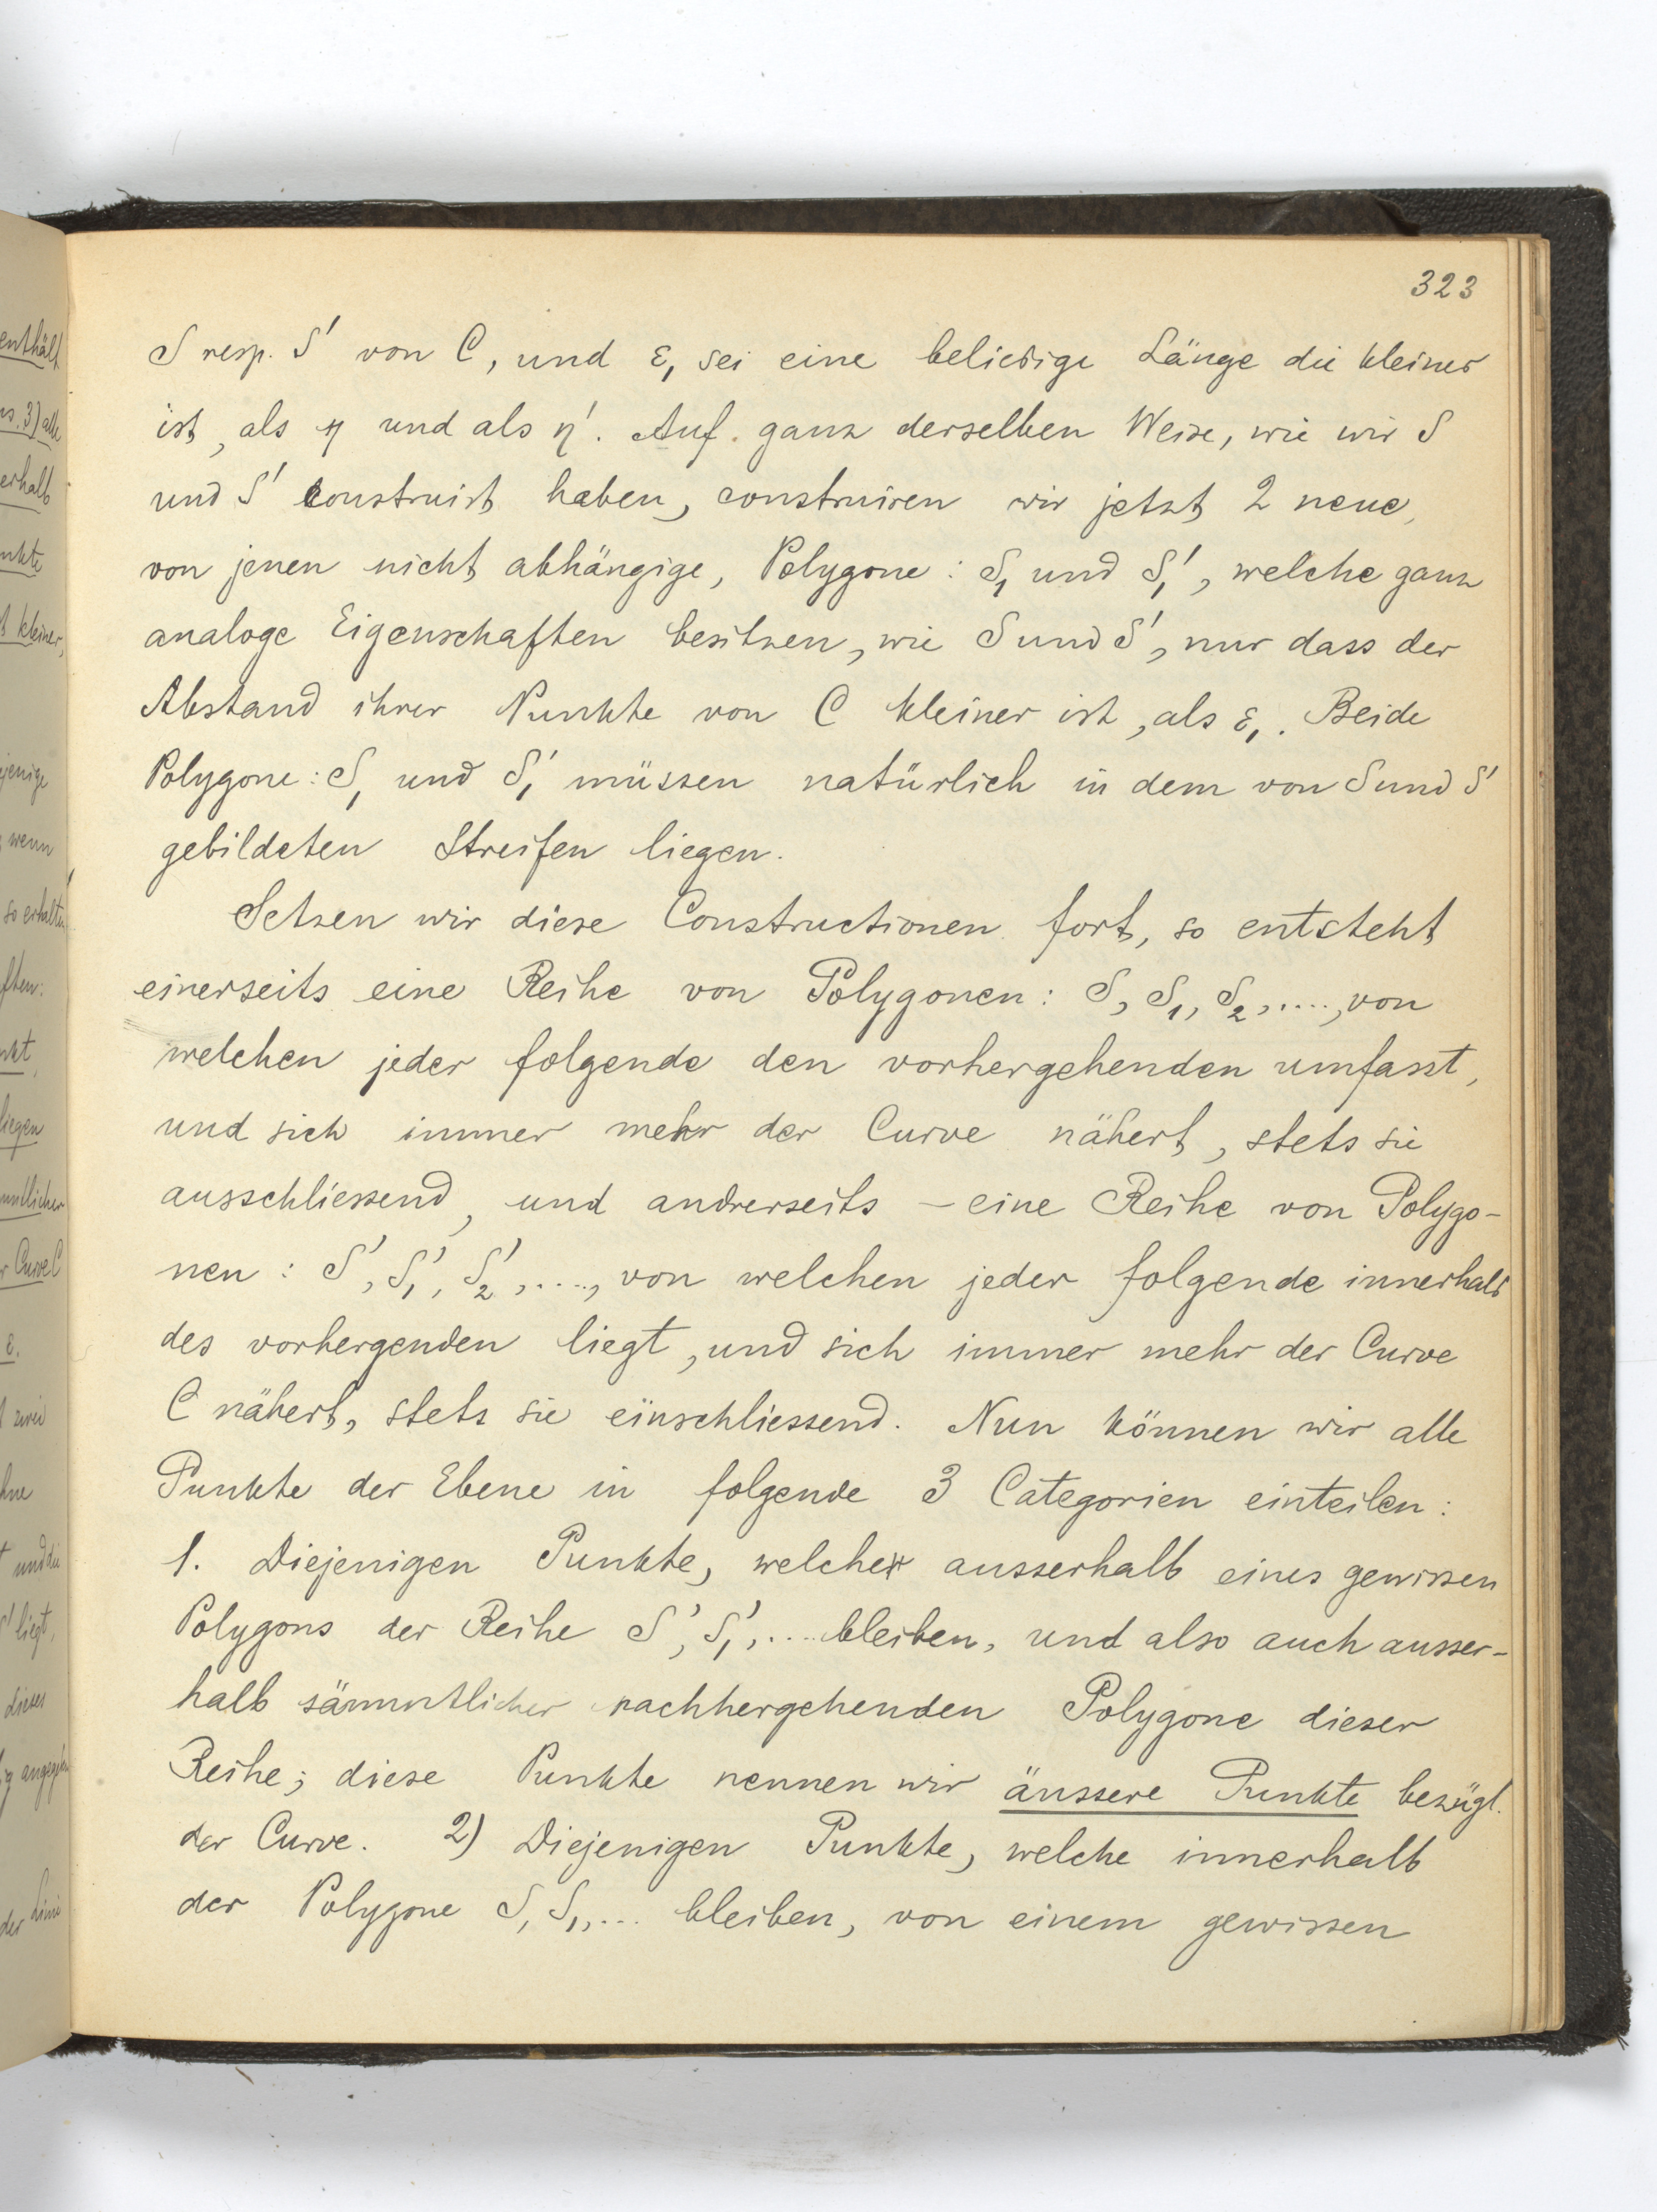 323
S resp. S' von C, und ε₁ sei eine beliebige Länge die kleiner
ist, als η und als η'. Auf ganz derselben Weise, wie wir S
und S' construirt haben, construiren wir jetzt 2 neue,
von jenen nicht abhängige, Polygone: S₁ und S₁', welche ganz
analoge Eigenschaften besitzen, wie S und S', nur dass der
Abstand ihrer Punkte von C kleiner ist, als ε₁. Beide
Polygone: S₁ und S₁' müssen natürlich in dem von S und S'
gebildeten Streifen liegen.
Setzen wir diese Constructionen fort, so entsteht
einerseits eine Reihe von Polygonen: S, S₁, S₂, ...., von
welchen jeder folgende den vorhergehenden umfasst,
und sich immer mehr der Curve nähert, stets sie
ausschliessend, und andrerseits – eine Reihe von Polygo-
nen: S', S₁', S₂', ...., von welchen jeder folgende innerhalb
des vorhergenden liegt, und sich immer mehr der Curve
C nähert, stets sie einschliessend. Nun können wir alle
Punkte der Ebene in folgende 3 Categorien einteilen:
1. Diejenigen Punkte, welche ausserhalb eines gewissen
Polygons der Reihe S', S₁', ... bleiben, und also auch ausser-
halb sämmtlicher nachhergehenden Polygone dieser
Reihe; diese Punkte nennen wir äussere Punkte bezügl.
der Curve. 2) Diejenigen Punkte, welche innerhalb
der Polygone S, S₁, ... bleiben, von einem gewissen
enthält
3) alle
erhalb
kleiner,
wenn
so erhalten
liegen
Curve C
ε.
zwei
und die
S' liegt,
dieses
der Linie